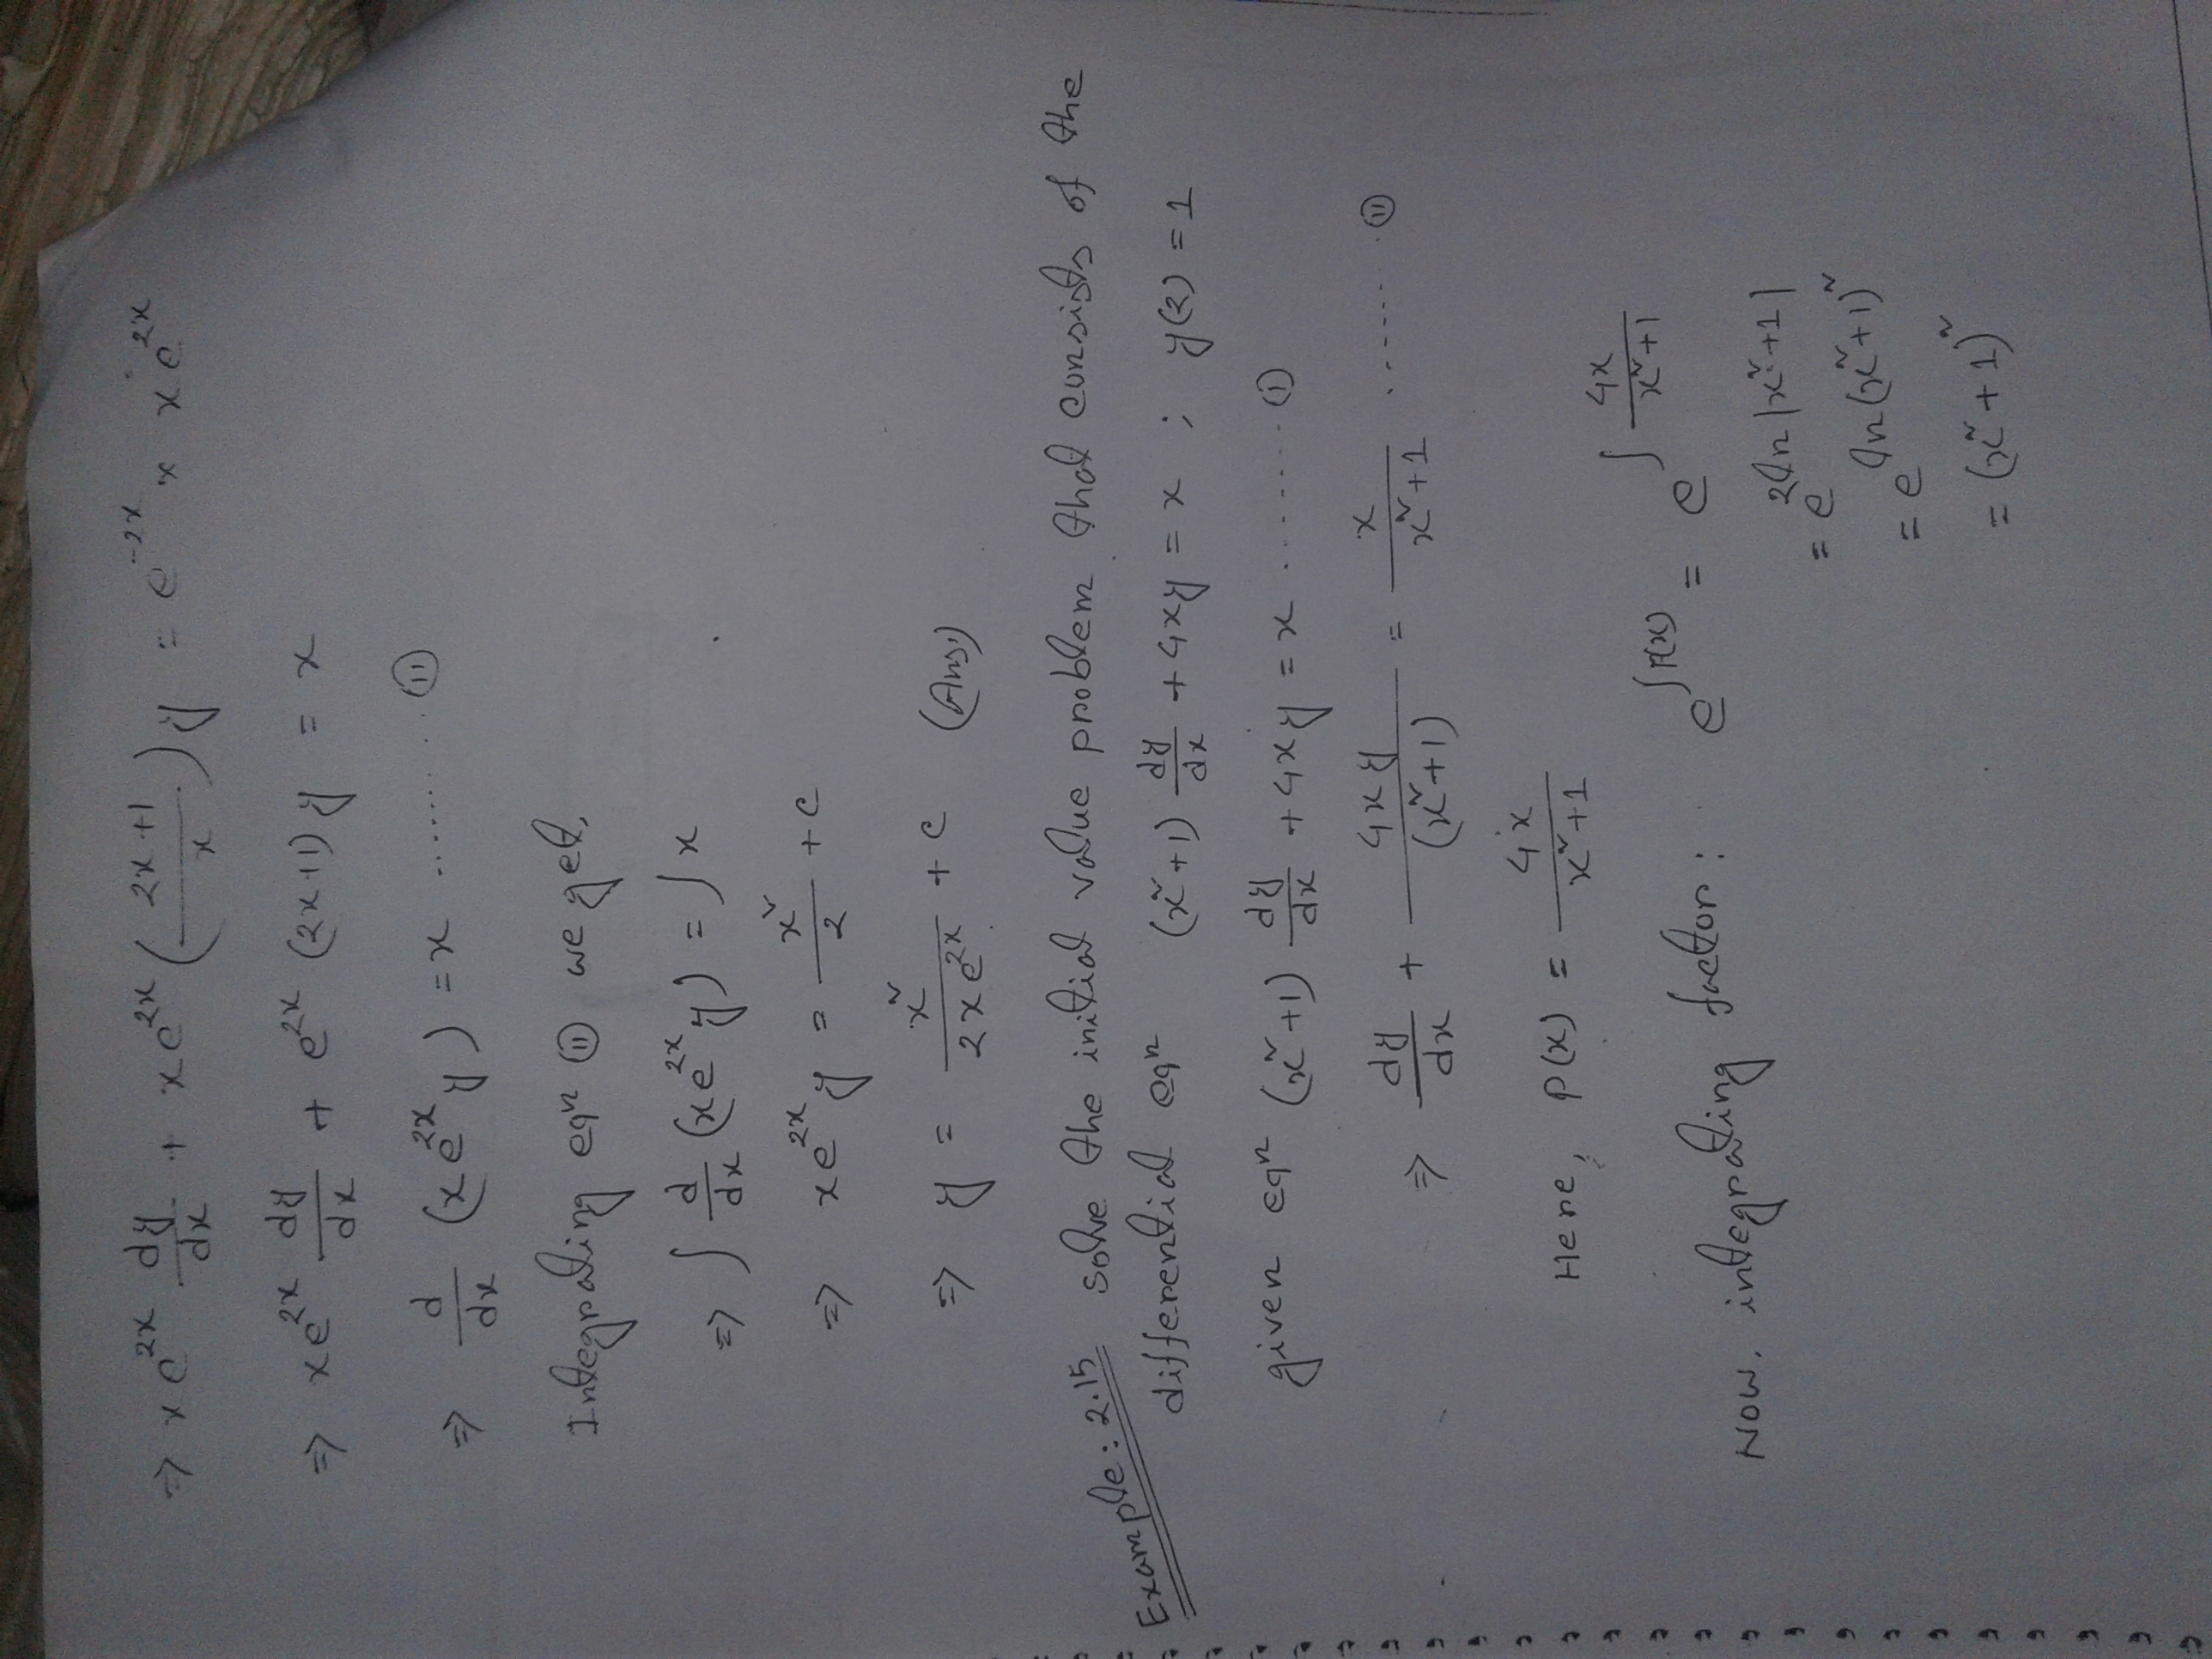 ⇒ xe^{2x} dy/dx + xe^{2x} ((2x+1)/x) y = e^{-2x} × xe^{2x}
⇒ xe^{2x} dy/dx + e^{2x} (2x+1) y = x
⇒ d/dx (xe^{2x} y) = x ......... (11)
Integrating eqⁿ (11) we get,
⇒ ∫ d/dx (xe^{2x} y) = ∫ x
⇒ xe^{2x} y = x²/2 + c
⇒ y = x²/(2xe^{2x}) + c (Ans:)
Example: 2.15 solve the initial value problem that consists of the
differential eqⁿ (x²+1) dy/dx + 4xy = x ; y(2) = 1
given eqⁿ (x²+1) dy/dx + 4xy = x ........ (1)
⇒ dy/dx + 4xy/(x²+1) = x/(x²+1) ........ (11)
Here, P(x) = 4x/(x²+1)
Now, integrating factor: e^{∫P(x)} = e^{∫ 4x/(x²+1)}
= e^{2ln|x²+1|}
= e^{ln(x²+1)²}
= (x²+1)²